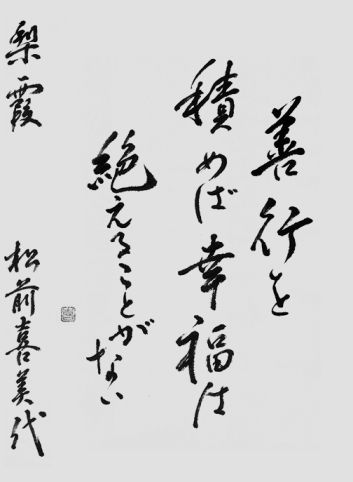 善行を
積めば幸福は
絶えることがない
梨霞
松前喜美代